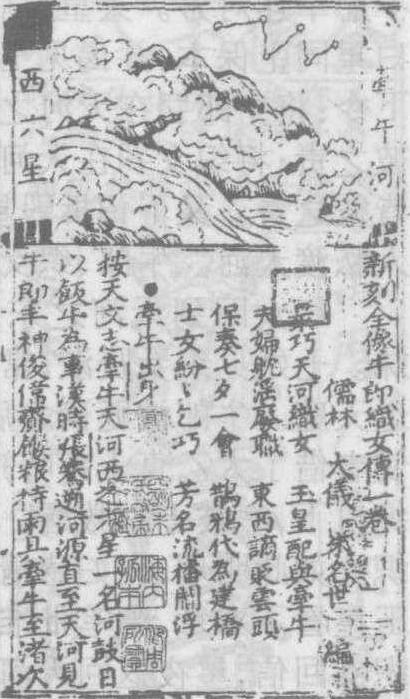 牽牛河
西六星
新刻全像牛郎織女傳一卷
儒林 太儀 朱名世 編
巧天河織女 玉皇配與牽牛
夫婦躭淫廢職 東西謫貶雲頭
保奏七夕一會 鵲鴉代為建橋
士女紛〻乞巧 芳名流播閻浮
牽牛出身
按天文志牽牛天河西六星一名河鼓日
以飯牛為事漢時張騫遡河源直至天河見
牛郎丰神俊偉齎餱粮持雨具牽牛至渚次